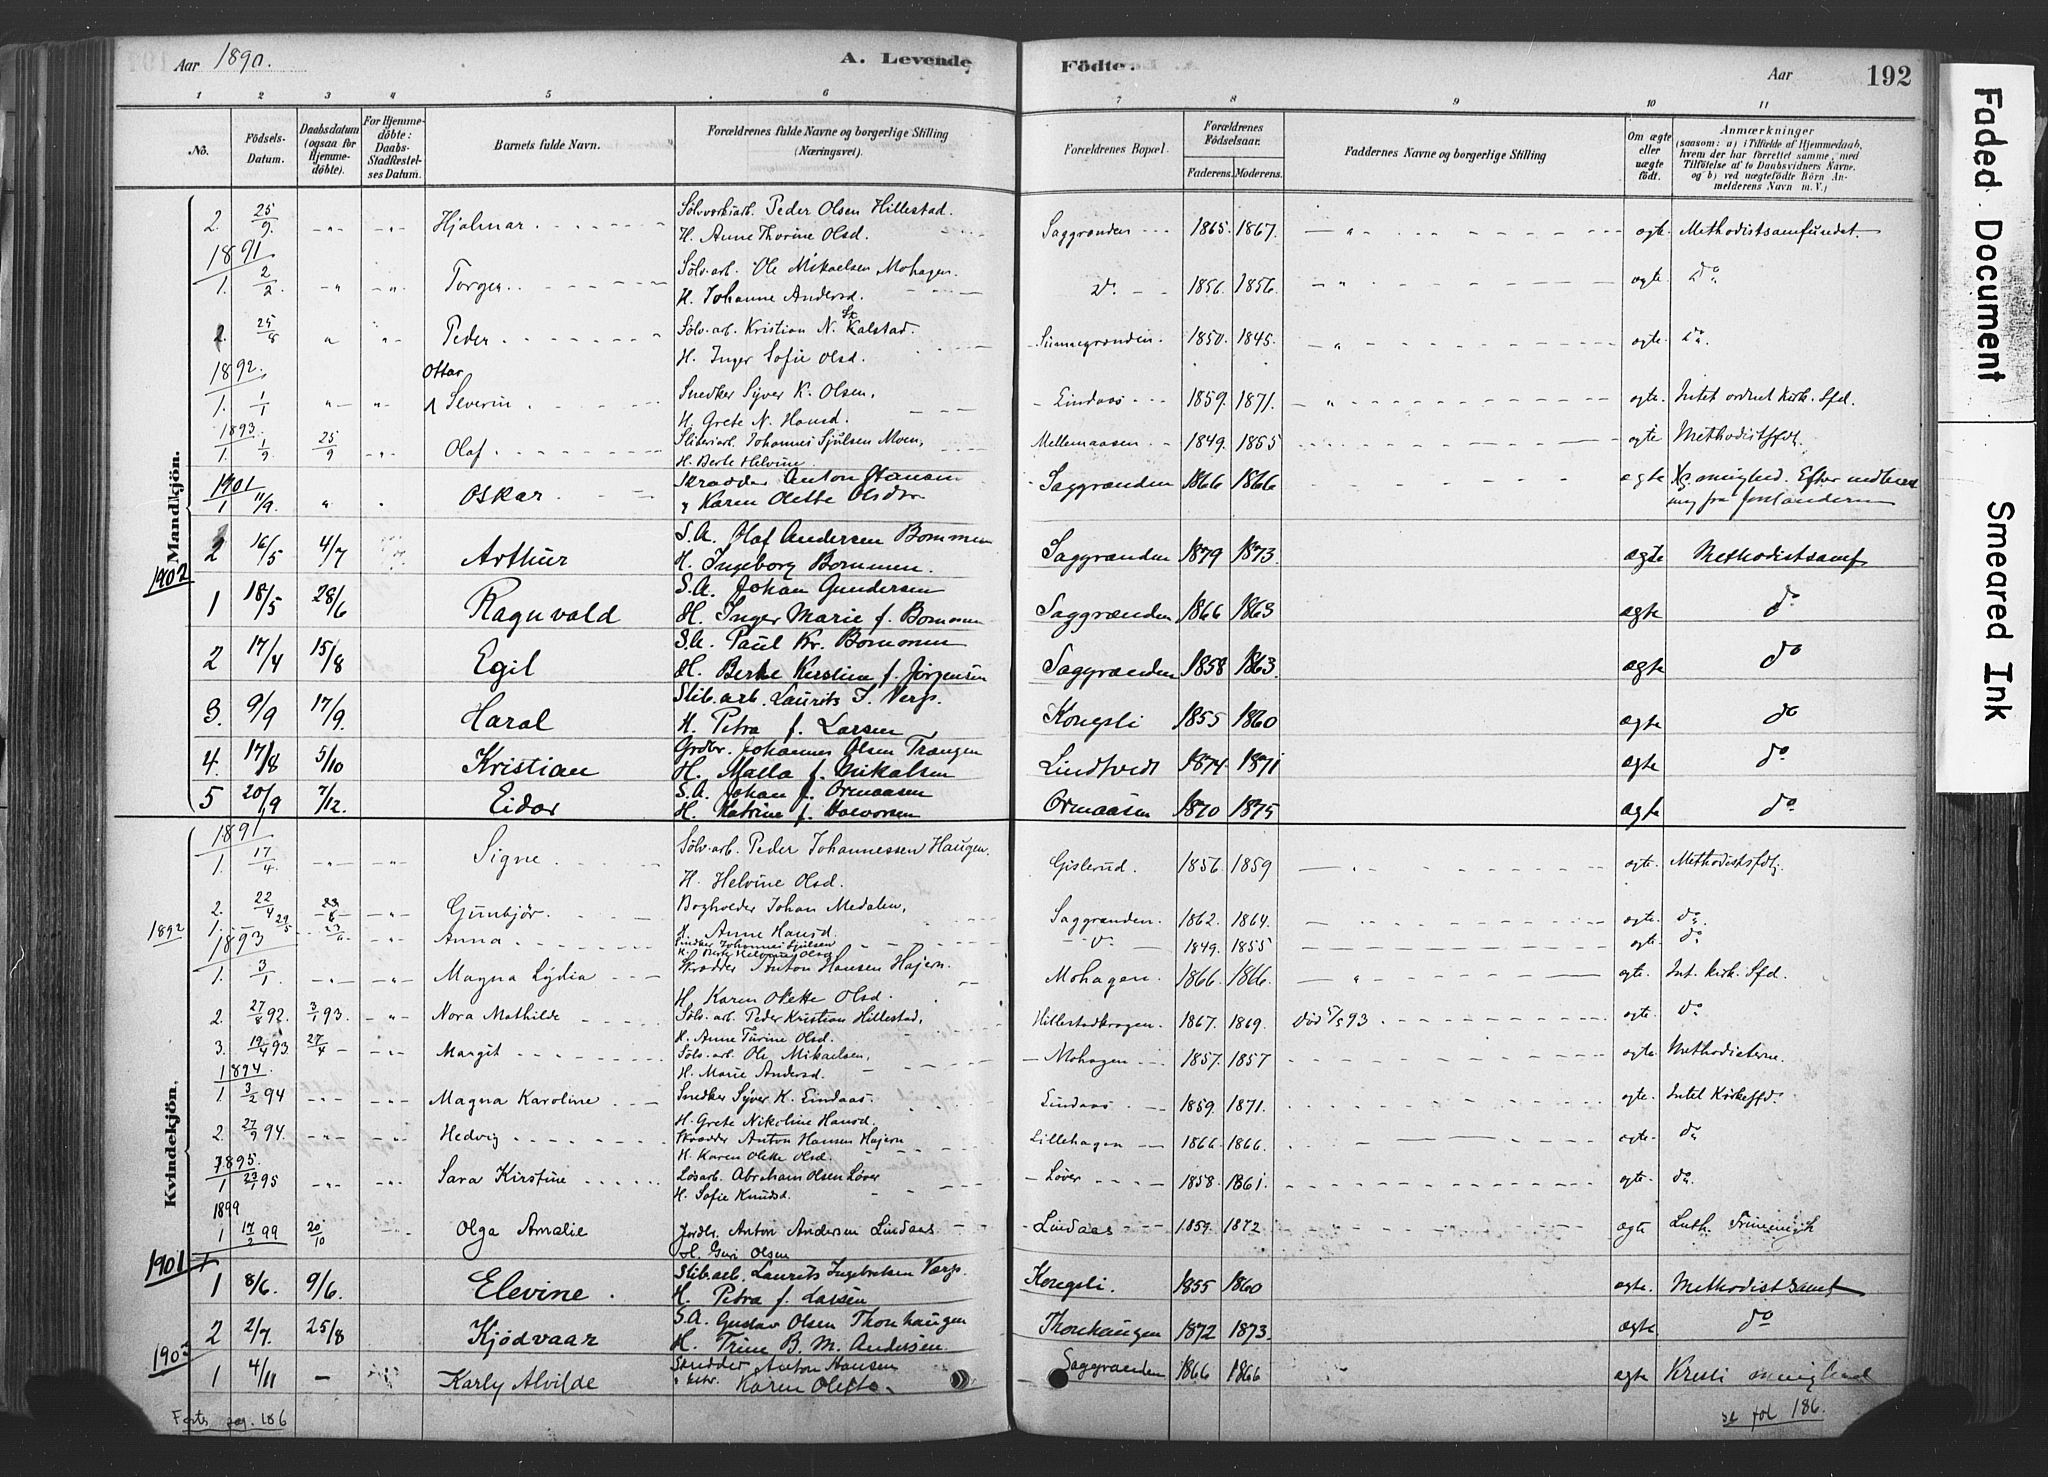 Aar 1890. A. Levende Fødte. Aar 192
1 2 3 4 5 6 7 8 9 10 11
No. Födsels-Datum. Daabsdatum (ogsaa for Hjemmedöbte). For Hjemmedöbte: Daabs-Stadfæstelses Datum. Barnets fulde Navn. Forældrenes fulde Navne og borgerlige Stilling (Næringsvei). Forældrenes Bopæl. Forældrenes Födselsaar. Faderens. Moderens. Faddernes Navne og borgerlige Stilling Om ægte eller uægte födt. Anmærkninger (saasom: a) i Tilfælde af Hjemmedaab, hvem der har forrettet samme, med Tilföielse af to Daabsvidners Navne, og b) ved uægtefödte Börn Anmelderens Navn m. V.)
Mandkjön.
2. 25/9 Hjalmar Sølvverksarb. Peder Olsen Hillestad. Saggrenden 1865. 1867. ægte. Methodistsamfundet.
H. Anne Thorine Olsd.
1891
1. 2/2. Torger Sølv.arb. Ole Mikaelsen Mohagen. do. 1856. 1856. ægte do
H. Johanne Andersd.
2. 25/8 Peder Sølv.arb. Kristian N. Kalstad. 1850. 1845. ægte. do.
H. Inger Sofie Olsd.
1892. Ottar
1. 1/1 Severin Snedker Syver K. Olsen, Lindaas 1859. 1871. ægte. Intet ordnet Kirk. Sfd.
H. Grete N. Hansd.
1893.
1. 1/9. 25/9 Olaf Johannes Sjulsen Moen, Mellemaasen 1849. 1855 ægte Methodistsfdg.
H. Berte Helvine
1901
1 11/9. Oskar Skrædder Anton Hansen Saggrænden 1866 1866 ægte
Karen Olette Olsdtr
2 16/5 4/7 Arthur S.A. Olaf Andersen Bommen Saggrænden 1879 1873. ægte Methodistsamf
H. Ingeborg Bommen.
1902
1 18/5 28/6 Ragnvald S.A. Johan Gundersen Saggrænden 1866 1863 ægte do
H. Inger Marie f. Bommen
2 17/4 15/8 Egil S.A. Paul Kr. Bommen Saggrænden 1858 1863. ægte do
H. Berte Kirstine f. Jørgensen
3. 9/9 17/9. Haral Stib.arb. Laurits I. Verp. Kongsli 1855 1860 ægte do
H. Petra f. Larsen
4. 17/8 5/10 Kristian Grdbr. Johannes Olsen Trangen Lindtvedt 1874 1871 ægte do
H. Malla f. Mikalsen
5 20/9 7/12. Eidar S.A. Johan J. Ormaasen Ormaasen 1870 1875 ægte do
H. Katrine f. Halvorsen
Kvindekjön.
1891
1. 17/4. Signe Sølv.arb. Peder Johannessen Haugen. Gislerud. 1856. 1859 ægte. Methodistsfdg.
H. Helvine Olsd.
2. 22/4 23/6 Gunbjør. Bogholder Johan Medalen, Saggrænden. 1862. 1864. ægte. do.
H. Anne Hansd.
1892 1. 29/5 Anna Snedker Johannes Sjulsen do 1849. 1855 ægte. do
H. Berte Helvine Olsd
1893
1. 3/1 Magna Lydia Skrædder Anton Hansen Hajern. Mohagen. 1866. 1866. ægte. Int. Kirk. Sfd.
H. Karen Olette Olsd.
2. 27/8 92. 3/1 93. Nora Mathilde Sølv.arb. Peder Kristian Hillestad, Hillestadkragen. 1867. 1869. Død 5/5 93 ægte. do.
H. Anne Turine Olsd.
3. 19/4 93. 27/4 Margit Sølv.arb. Ole Mikaelsen, Mohagen 1857. 1857 ægte Methodisterne.
H. Marie Andersd.
1894.
1. 3/2 94 Magna Karoline Snedker Syver K. Lindaas. Lindaas. 1859. 1871. ægte. Intet Kirkesfd.
H. Grete Nikoline Hansd.
2. 27/9 94. Hedvig Skrædder Anton Hansen Hajern Lillehagen 1866. 1866. ægte. do
H. Karen Olette Olsd.
1895.
1 23/1 95 Sara Kirstine Løsarb. Abraham Olsen Løver Løver 1858. 1861. ægte. do.
H. Sofie Knudsd.
1899
1 17/2 99 20/10 Olga Amalie Jordbr. Anton Andersen Lindaas Lindaas 1859. 1872 ægte Luth. Frimenigh
H. Guri Olsen
1901
1 8/6. 9/6. Elevine. Stib.arb. Laurits Ingebretsen Verp. Kongsli. 1855 1860 ægte. Methodistsamf
H. Petra f. Larsen
2 2/7. 25/8 Kjödvaar S.A. Gustav Olsen Thorshaugen Thorshaugen 1872 1873. ægte do
H. Trine B. M. Andersen.
1903
1 4/11 Karly Alvilde Skrædder Anton Hansen Saggrænden 1866 1866 ægte Kristi menighed
Karen Olette
Forts pag. 186 se fol 186.
Faded Document
Smeared Ink